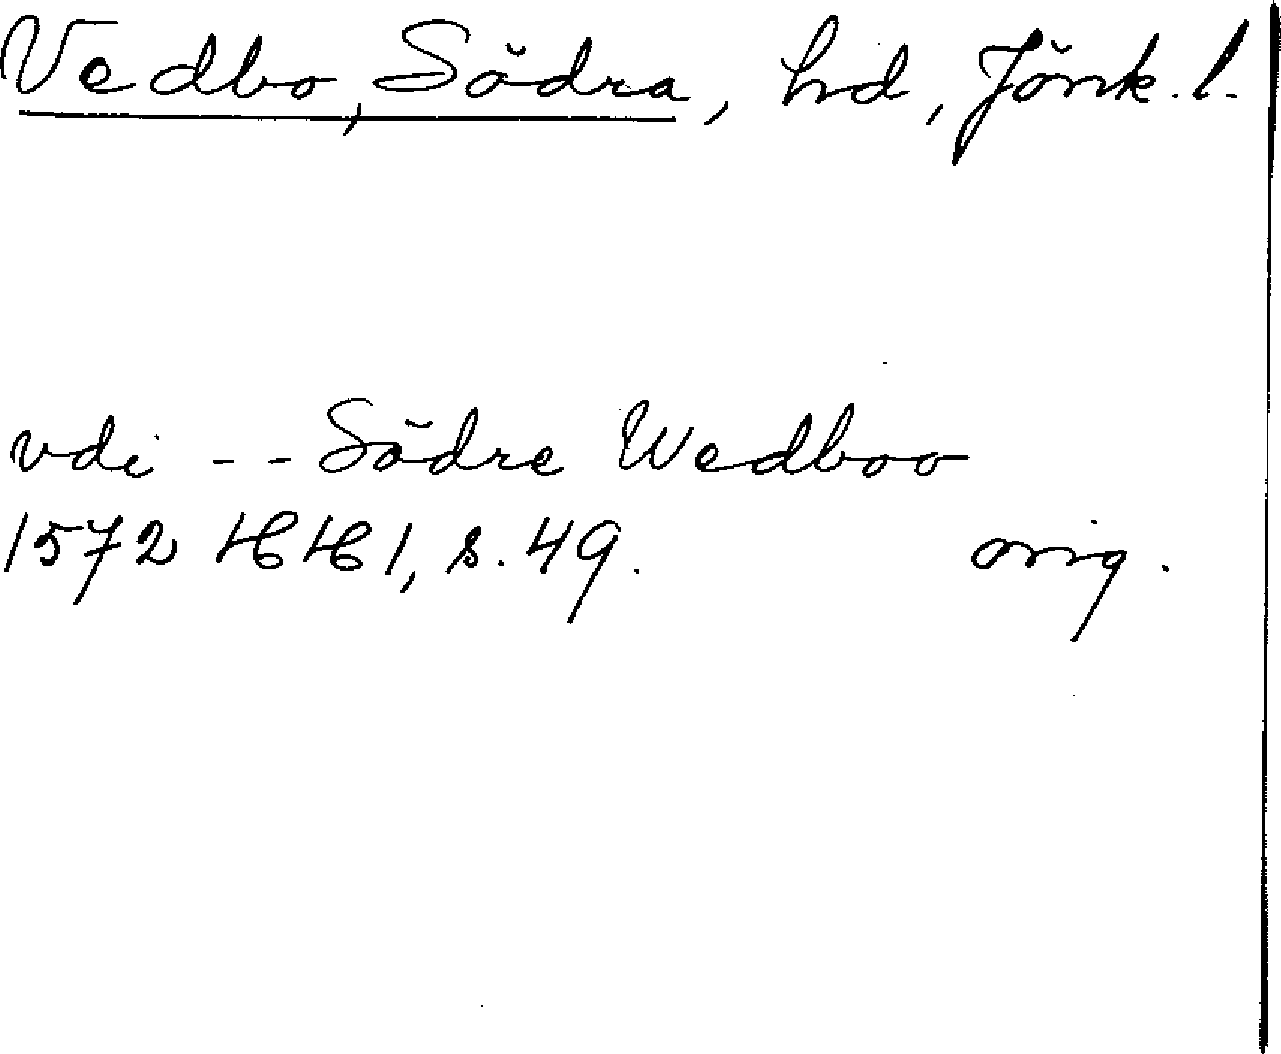 Vedbo, Södra, hd, Jönk. l.
vdi -- Södre Wedboo
1572 HH 1, s. 49. orig.